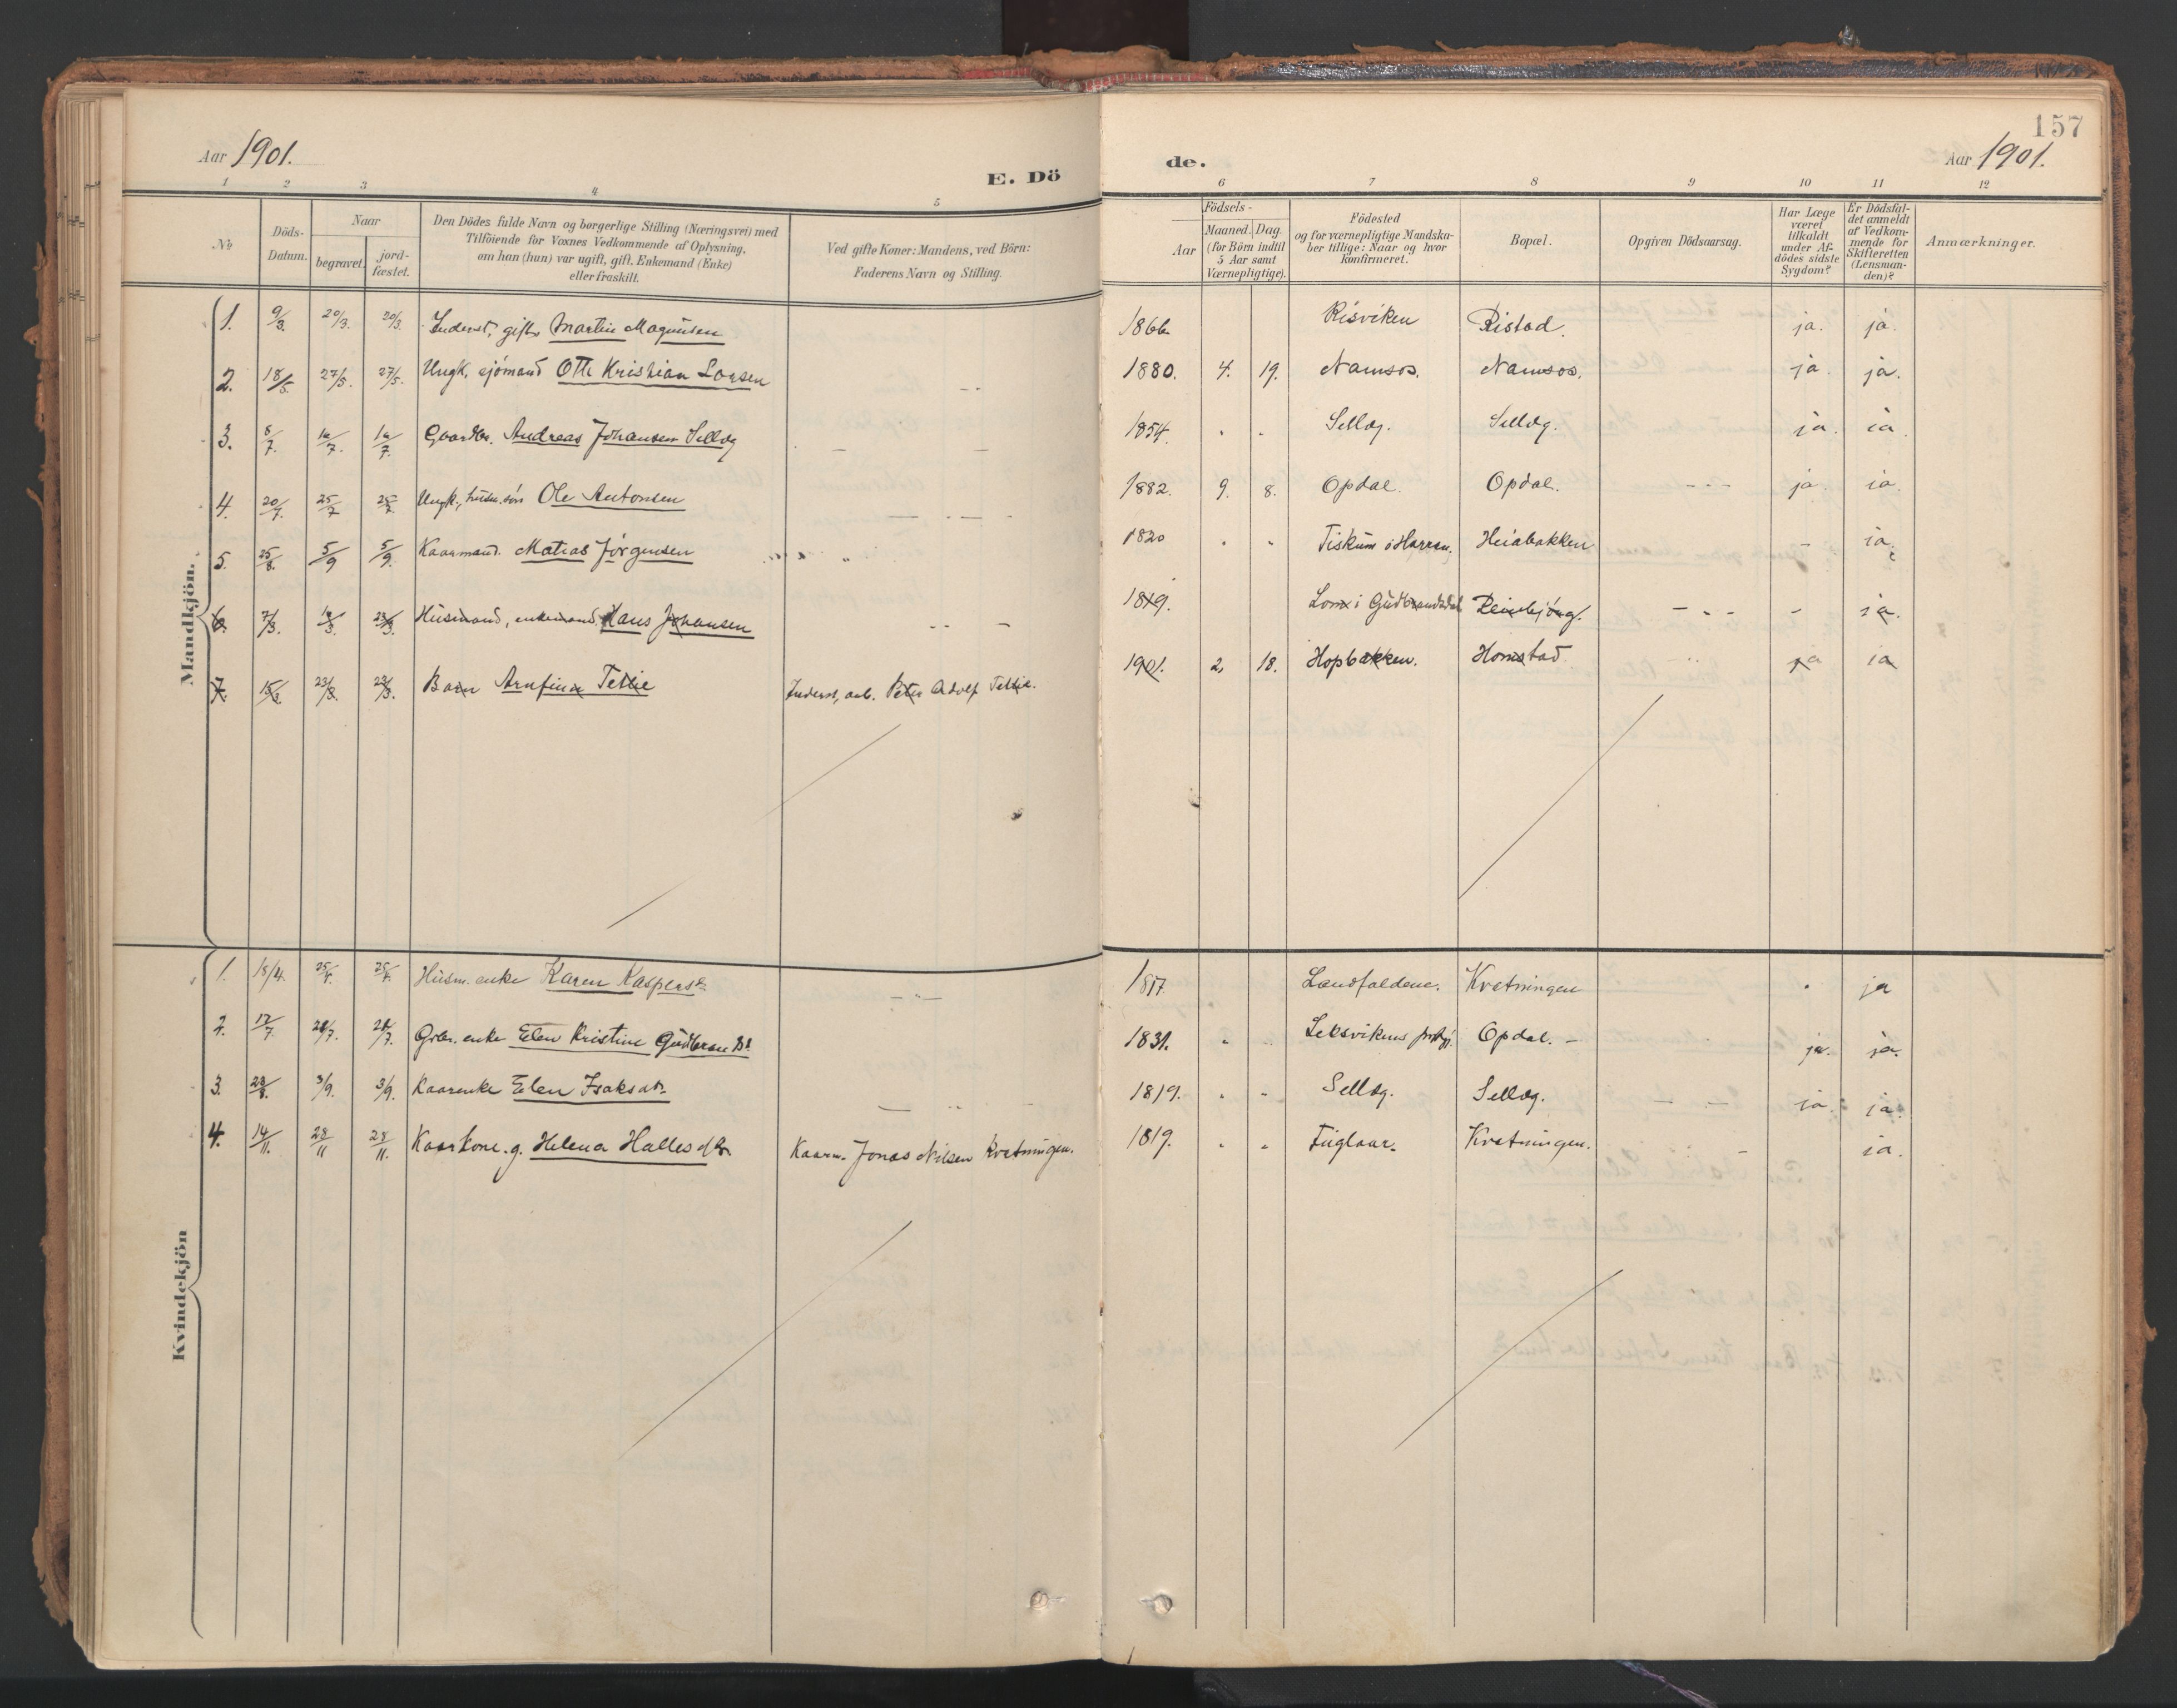 157
Aar 1901.
E. Dö
de.
Aar 1901.
1 2 3 4 5 6 7 8 9 10 11 12
No
Döds-
Datum.
Naar
begravet.
jord-
fæstet.
Den Dödes fulde Navn og borgerlige Stilling (Næringsvei) med
Tilföiende for Voxnes Vedkommende af Oplysning,
om han (hun) var ugift, gift, Enkemand (Enke)
eller fraskilt.
Ved gifte Koner: Mandens, ved Börn:
Faderens Navn og Stilling.
Födsels-
Aar
Maaned. Dag
(for Börn indtil
5 Aar samt
Værnepligtige).
Födested
og for værnepligtige Mandska-
ber tillige: Naar og hvor
konfirmeret.
Bopæl.
Opgiven Dödsaarsag.
Har Læge
været
tilkaldt
under Af-
dödes sidste
Sygdom?
Er Dödsfal-
det anmeldt
af Vedkom-
mende for
Skifteretten
(Lensman-
den)?
Anmærkninger.
Mandkjön.
1. 9/3. 20/3. 20/3. Inderst, gift, Martin Magnusen 1866. Risviken Ristad. ja. ja.
2. 18/5. 27/5. 27/5. Ungk. sjömand Otto Kristian Larsen 1880. 4. 19. Namsos. Namsos. ja ja.
3. 8/7. 16/7. 16/7. Gaardbr. Andreas Johansen Selløg 1854. Selløg. Selløg. ja. ja.
4. 20/7. 25/7 25/7 Ungk., husm. sön Ole Antonsen 1882. 9. 8. Opdal. Opdal. - - - ja. ja.
5. 25/8. 5/9 5/9. Kaarmand. Matias Jörgensen 1820 Tiskum i Harran. Heiabakken - ja.
6. 7/3. 14/3. 23/3. Husmand, enkemand Hans Johansen 1819. Lom i Gudbrandsdal Reinbjörg. - - - - ja.
7. 15/3. 23/3. 23/3. Barn Arnfinn Tetlie Inderst, arb. Peter Adolf Tetlie. 1901. 2. 18. Hopbakken. Homstad ja ja
Kvindekjön
1. 15/4. 25/4. 25/4. Husm. enke Karen Kaspersdr. 1817. Landfaldene. Kvetningen ja
2. 12/7. 21/7. 21/7. Grbr. enke Elen Kristine Gudbransdr. 1831. Leksvikens prstgj. Opdal. - ja. ja.
3. 23/8. 3/9. 3/9. Kaarenke Elen Isaksdtr. 1819. Selløg. Selløg. ja. ja.
4. 14/11. 28/11 28/11. Kaarkone. g. Helena Hallesdtr. Kaarm. Jonas Nilsen Kvetningen. 1819. Fuglaar. Kvetningen. ja.